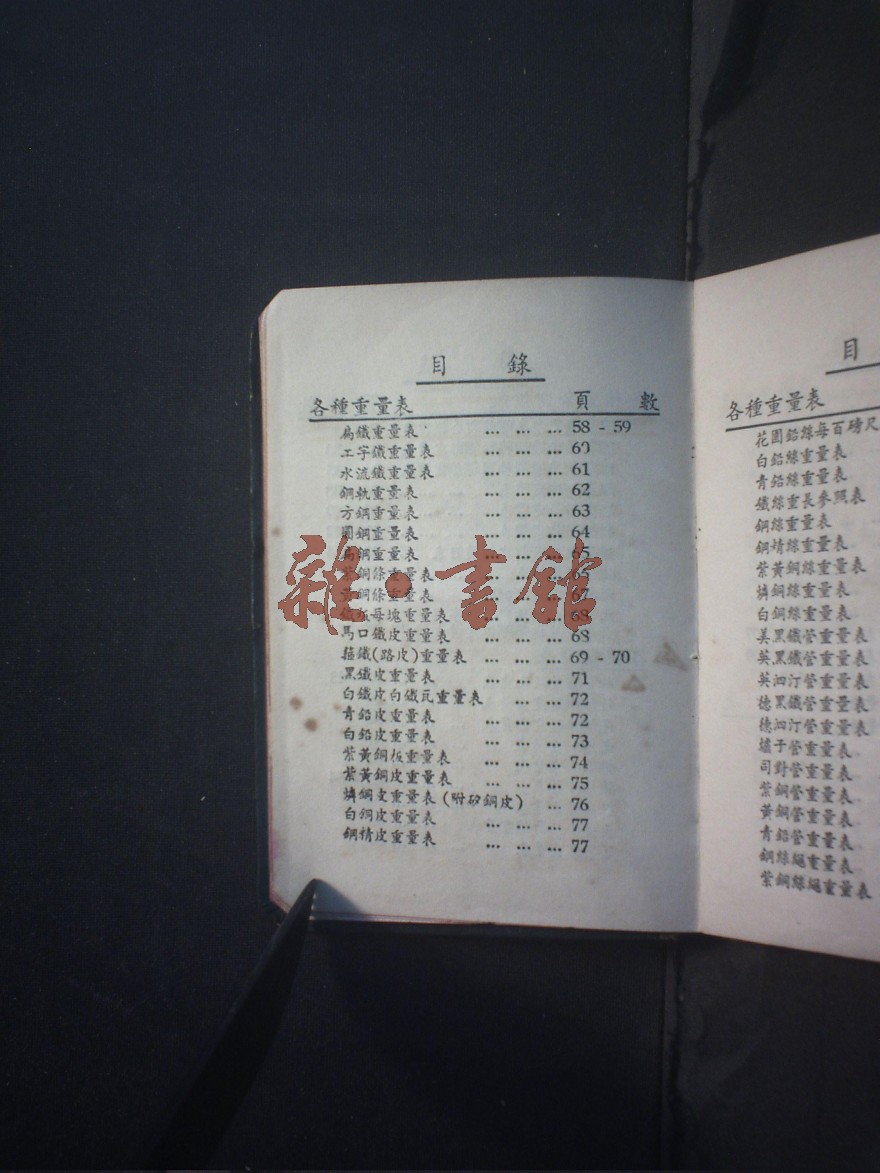 目 錄
各種重量表 頁 數
扁鐵重量表 ... ... ... 58 - 59
工字鐵重量表 ... ... ... 60
水流鐵重量表 ... ... ... 61
鋼軌重量表 ... ... ... 62
方鋼重量表 ... ... ... 63
圓鋼重量表 ... ... ... 64
扁鋼重量表 ... ... ... 65
銅條重量表 ... ...
銅條重量表 67
每塊重量表 68
馬口鐵皮重量表 ... ... ... 68
(路皮)重量表 ... ... ... 69 - 70
黑鐵皮重量表 ... ... ... 71
白鐵皮白鐵瓦重量表 ... ... 72
青鉛皮重量表 ... ... ... 72
白鉛皮重量表 ... ... ... 73
紫黃銅板重量表 ... ... ... 74
紫黃銅皮重量表 ... ... ... 75
燐銅皮重量表(附矽鋼皮) ... 76
白銅皮重量表 ... ... ... 77
鋼精皮重量表 ... ... ... 77
雜·書館
目
各種重量表
花園鉛絲每百磅尺
白鉛絲重量表
青鉛絲重量表
鐵絲重長參照表
鋼絲重量表
鋼精絲重量表
紫黃銅絲重量表
燐銅絲重量表
白銅絲重量表
美黑鐵管重量表
英黑鐵管重量表
英泗汀管重量表
德黑鐵管重量表
德泗汀管重量表
爐子管重量表
司對管重量表
紫銅管重量表
黃銅管重量表
青鉛管重量表
鋼絲繩重量表
紫銅絲繩重量表